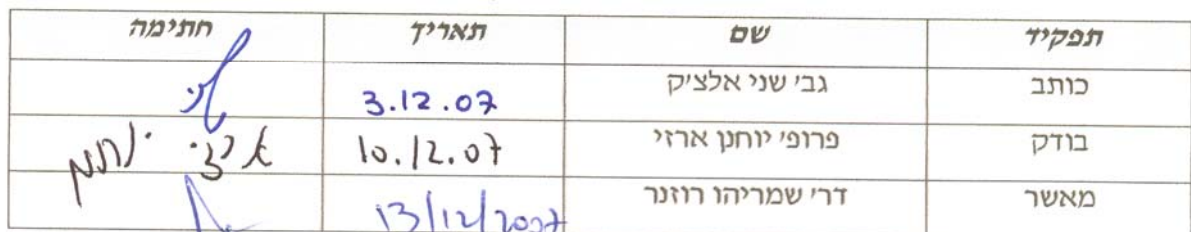 תפקיד שם תאריך חתימה
כותב גב' שני אלצ'ק 3.12.07 שני
בודק פרופ' יוחנן ארזי 10.12.07 ארזי יוחנן
מאשר דר' שמריהו רוזנר 13/12/2007